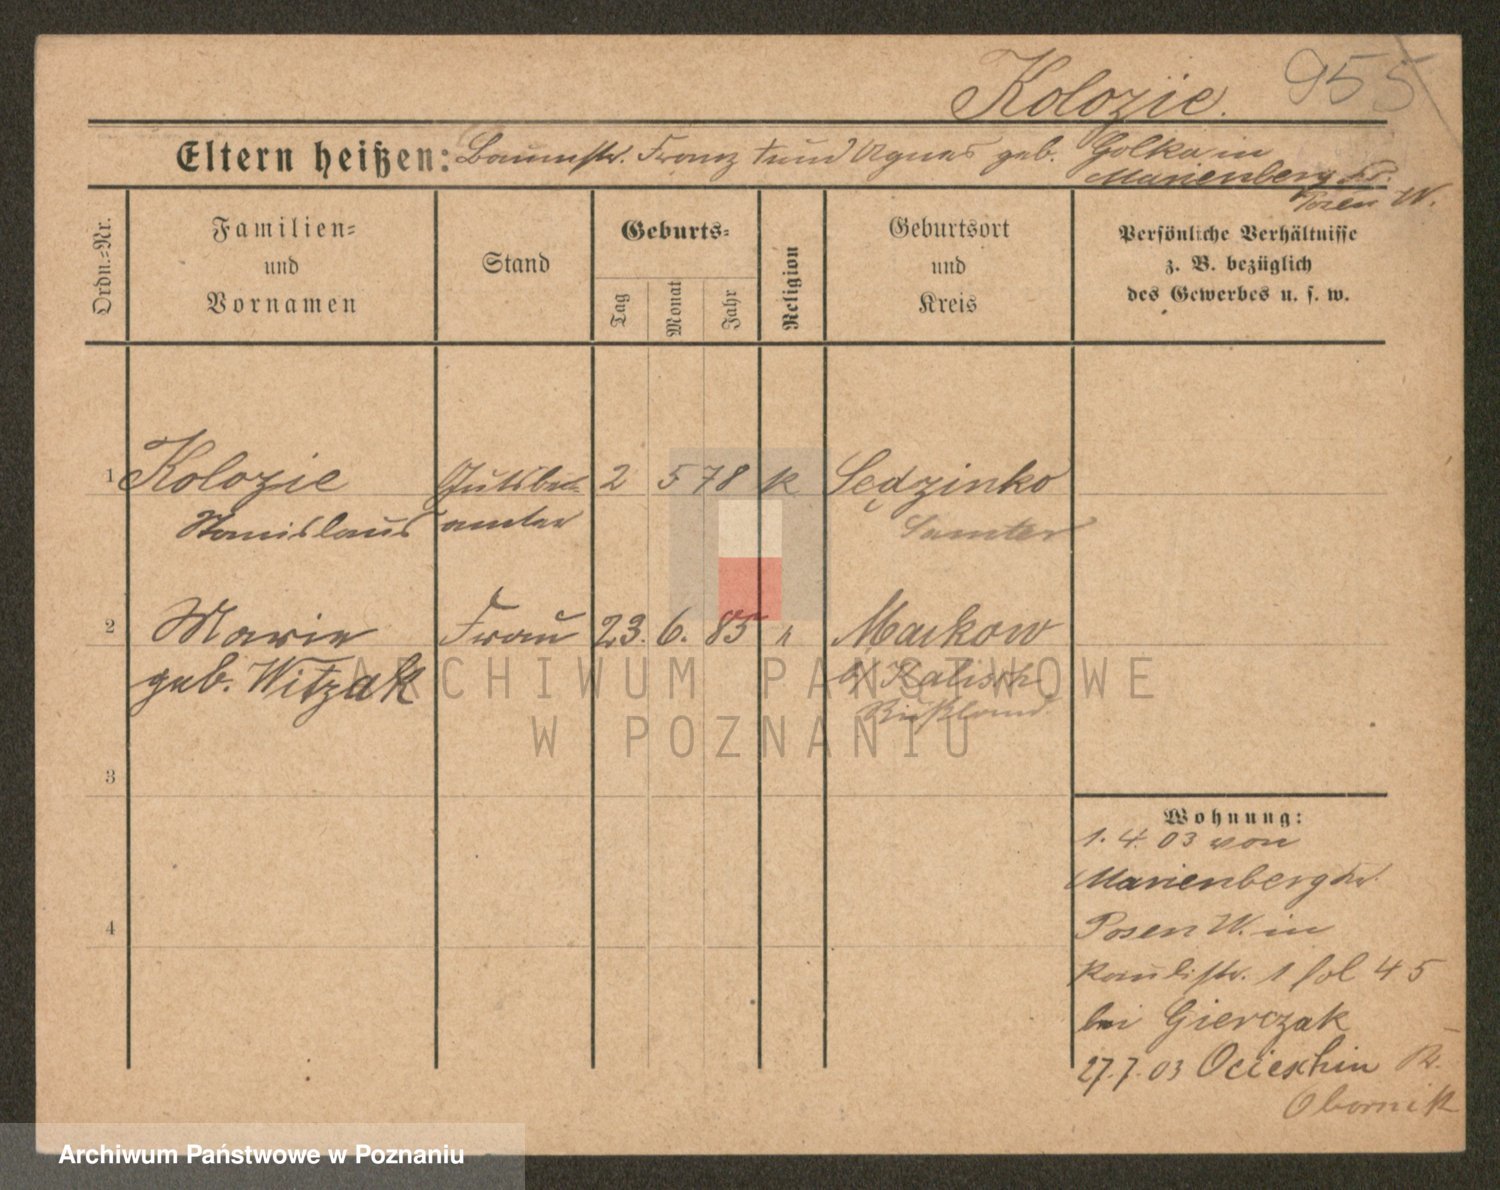 955
Kolozie.
Eltern heißen: Baumstr. Franz † und Agnes geb. Golka in
Marienberg Kr.
Posen W.
Ordn.-Nr.
Familien-
und
Vornamen
Stand
Geburts-
Tag
Monat
Jahr
Religion
Geburtsort
und
Kreis
Persönliche Verhältnisse
z. B. bezüglich
des Gewerbes u. s. w.
1 Kolozie Gutsbe- 2 5 78 k Sędzinko
Stanislaus amter Samter
2 Marie Frau 23. 6. 85 Markow
geb. Witzak b/ Kalisch
Rußland
3
4
Wohnung:
1. 4. 03 von
Marienberg Kr.
Posen W. in
1 fol 45
bei Gierczak
27. 7. 03 Ocieschin Kr.
Obornik
ARCHIWUM PAŃSTWOWE
W POZNANIU
Archiwum Państwowe w Poznaniu